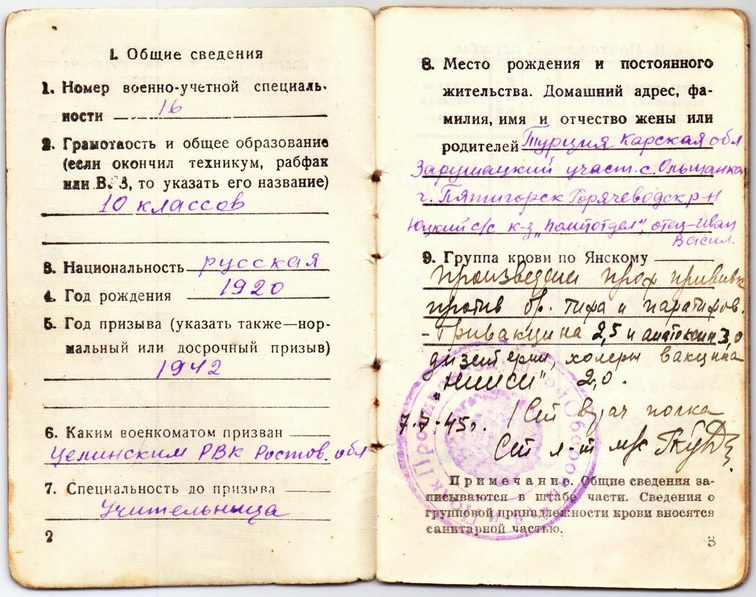 I. Общие сведения
1. Номер военно-учетной специаль-
ности 16
2. Грамотность и общее образование
(если окончил техникум, рабфак
или В.З, то указать его название)
10 классов
3. Национальность русская
4. Год рождения 1920
5. Год призыва (указать также—нор-
мальный или досрочный призыв)
1942
6. Каким военкоматом призван
Целинским РВК Ростов. обл
7. Специальность до призыва
Учительница
2
8. Место рождения и постоянного
жительства. Домашний адрес, фа-
милия, имя и отчество жены или
родителей Турция Карская обл
Зарушацкий участ. с. Ольшанка
г. Пятигорск Горячеводск р-н
Юцкий с/с к-з „Политотдел", отец-Иван
Васил.
9. Группа крови по Янскому
Произведены проф прививк
против бр. тифа и паратифов.
- Тривакцина 2,5 и анатоксин 3,0
дизентерии, холеры вакцина
"НИИСИ" 2,0.
7.7.45г. Ст врач полка
Ст л-т м/с
Примечание. Общие сведения за-
писываются в штабе части. Сведения о
групповой принадлежности крови вносятся
санитарной частью.
3